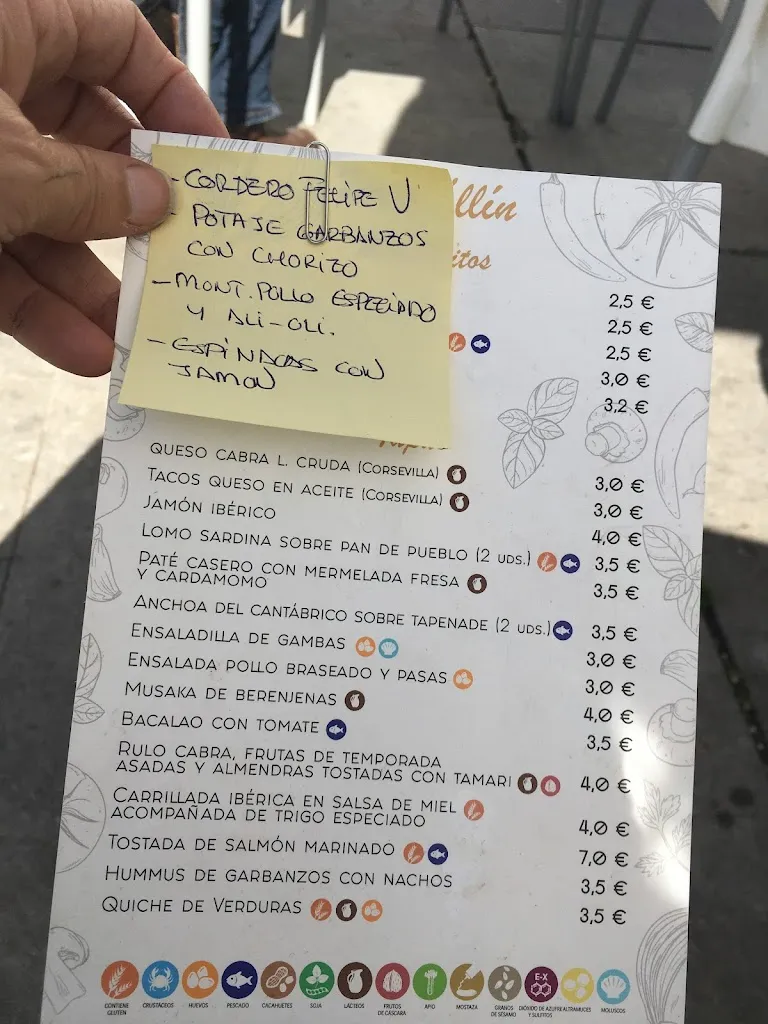 - CORDERO FELIPE V
- POTAJE GARBANZOS
CON CHORIZO
- MONT. POLLO ESPECIADO
Y ALI-OLI.
- ESPINACAS CON
JAMON
2,5 €
2,5 €
2,5 €
3,0 €
3,2 €
QUESO CABRA L. CRUDA (CORSEVILLA) 3,0 €
TACOS QUESO EN ACEITE (CORSEVILLA) 3,0 €
JAMÓN IBÉRICO 4,0 €
LOMO SARDINA SOBRE PAN DE PUEBLO (2 UDS.) 3,5 €
PATÉ CASERO CON MERMELADA FRESA
Y CARDAMOMO 3,5 €
ANCHOA DEL CANTÁBRICO SOBRE TAPENADE (2 UDS.) 3,5 €
ENSALADILLA DE GAMBAS 3,0 €
ENSALADA POLLO BRASEADO Y PASAS 3,0 €
MUSAKA DE BERENJENAS 4,0 €
BACALAO CON TOMATE 3,5 €
RULO CABRA, FRUTAS DE TEMPORADA
ASADAS Y ALMENDRAS TOSTADAS CON TAMARI 4,0 €
CARRILLADA IBÉRICA EN SALSA DE MIEL
ACOMPAÑADA DE TRIGO ESPECIADO 4,0 €
TOSTADA DE SALMÓN MARINADO 7,0 €
HUMMUS DE GARBANZOS CON NACHOS 3,5 €
QUICHE DE VERDURAS 3,5 €
CONTIENE GLUTEN CRUSTÁCEOS HUEVOS PESCADO CACAHUETES SOJA LÁCTEOS FRUTOS DE CÁSCARA APIO MOSTAZA GRANOS DE SÉSAMO E-X DIÓXIDO DE AZUFRE Y SULFITOS ALTRAMUCES MOLUSCOS